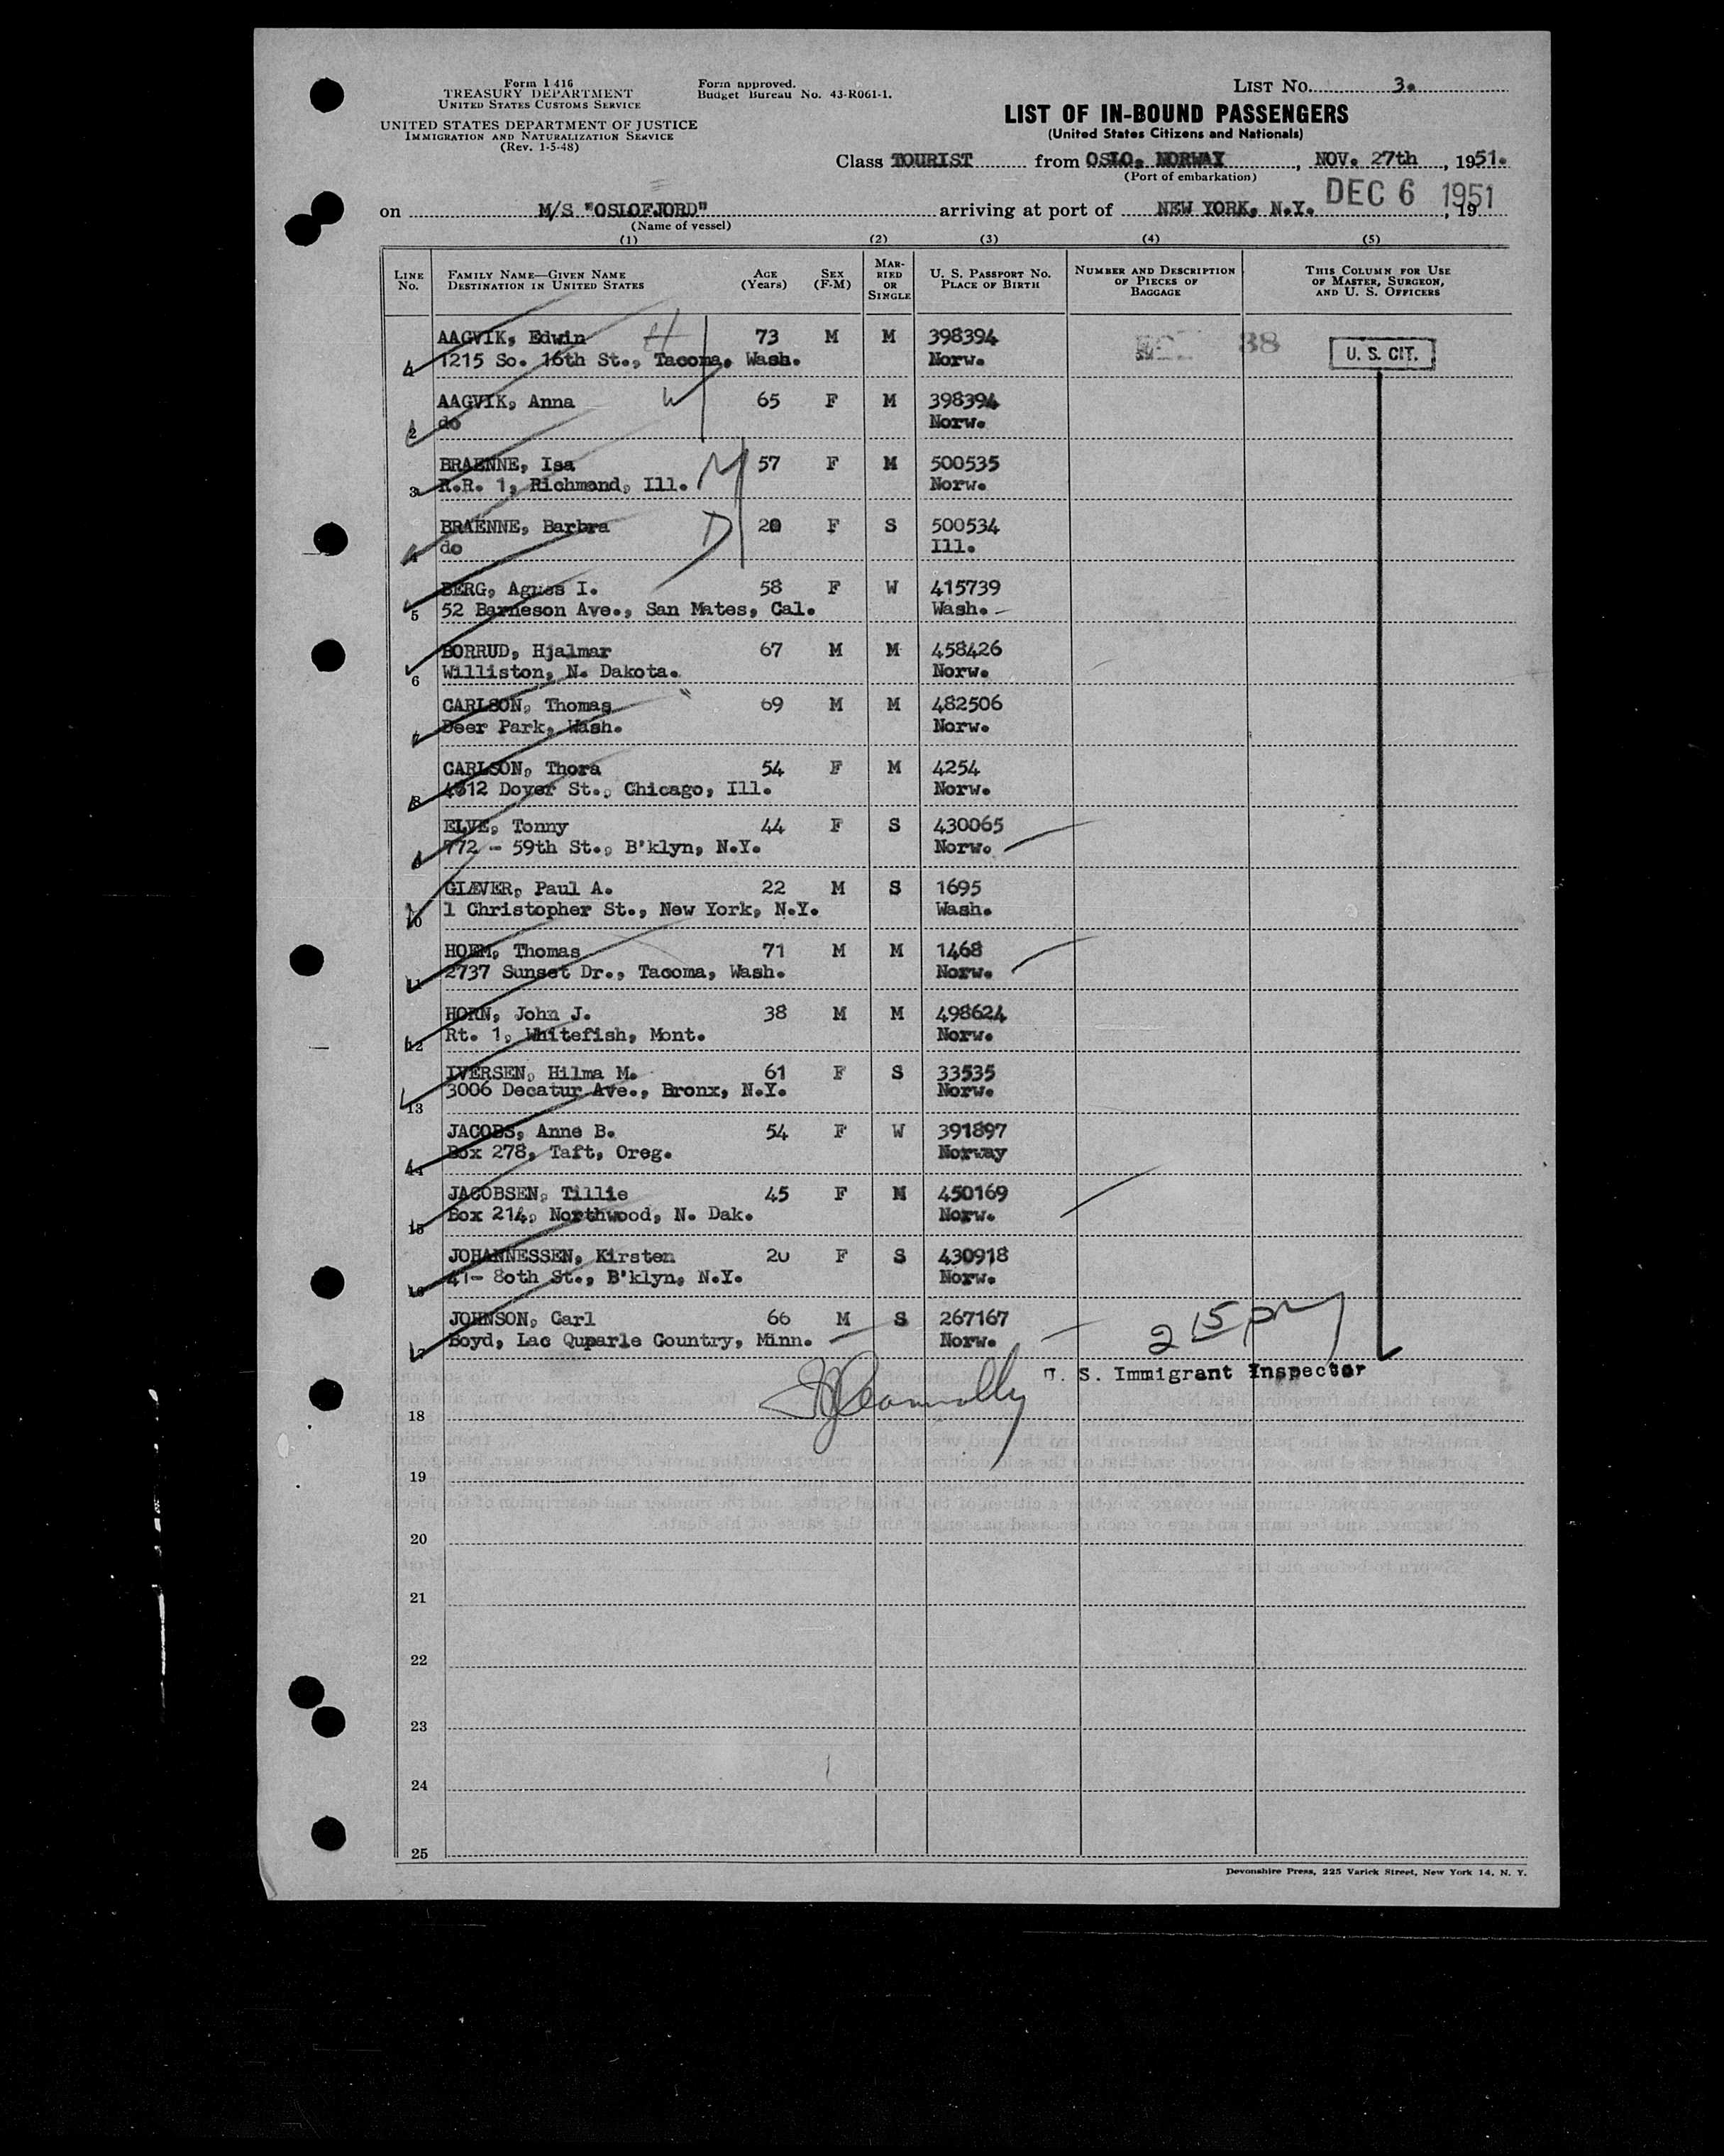 Form I 416
TREASURY DEPARTMENT
UNITED STATES CUSTOMS SERVICE
UNITED STATES DEPARTMENT OF JUSTICE
IMMIGRATION AND NATURALIZATION SERVICE
(Rev. 1-5-48)
Form approved.
Budget Bureau No. 43-R061-1.
LIST No. 3.
LIST OF IN-BOUND PASSENGERS
(United States Citizens and Nationals)
Class TOURIST from OSLO. NORWAY, NOV. 27th, 1951.
(Port of embarkation)
on M/S "OSLOFJORD" arriving at port of NEW YORK, N.Y. DEC 6 1951, 19
(Name of vessel)
(1) (2) (3) (4) (5)
LINE No. FAMILY NAME—GIVEN NAME DESTINATION IN UNITED STATES AGE (Years) SEX (F-M) MARRIED OR SINGLE U. S. PASSPORT NO. PLACE OF BIRTH NUMBER AND DESCRIPTION OF PIECES OF BAGGAGE THIS COLUMN FOR USE OF MASTER, SURGEON, AND U. S. OFFICERS
AAGVIK, Edwin H 73 M M 398394 88 U. S. CIT.
1215 So. 16th St., Tacoma, Wash. Norw.
AAGVIK, Anna W 65 F M 398394
2 do Norw.
BRAENNE, Isa M 57 F M 500535
3 R.R. 1, Richmond, Ill. Norw.
BRAENNE, Barbra D 20 F S 500534
4 do Ill.
BERG, Agnes I. 58 F W 415739
5 52 Barneson Ave., San Mates, Cal. Wash.
BORRUD, Hjalmar 67 M M 458426
6 Williston, N. Dakota. Norw.
CARLSON, Thomas 69 M M 482506
7 Deer Park, Wash. Norw.
CARLSON, Thora 54 F M 4254
8 4812 Dover St., Chicago, Ill. Norw.
ELVE, Tonny 44 F S 430065
772 - 59th St., B'klyn, N.Y. Norw.
GIÆVER, Paul A. 22 M S 1695
10 1 Christopher St., New York, N.Y. Wash.
HOEM, Thomas 71 M M 1468
11 2737 Sunset Dr., Tacoma, Wash. Norw.
HORN, John J. 38 M M 498624
12 Rt. 1, Whitefish, Mont. Norw.
IVERSEN, Hilma M. 61 F S 33535
3006 Decatur Ave., Bronx, N.Y. Norw.
13
JACOBS, Anne B. 54 F W 391897
14 Box 278, Taft, Oreg. Norway
JACOBSEN, Tillie 45 F M 450169
15 Box 214, Northwood, N. Dak. Norw.
JOHANNESSEN, Kirsten 20 F S 430918
16 41- 80th St., B'klyn, N.Y. Norw.
JOHNSON, Carl 66 M S 267167
17 Boyd, Lac Quparle Country, Minn. Norw.
2 15 pm
Connolly U. S. Immigrant Inspector
18
19
20
21
22
23
24
25
Devonshire Press, 225 Varick Street, New York 14, N. Y.